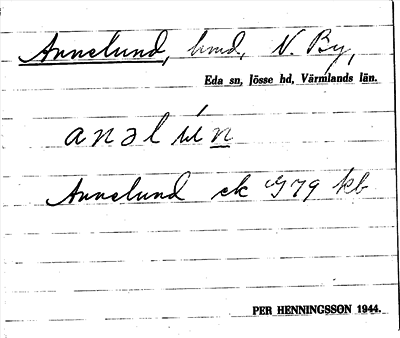 Annelund, hmd, N. By,
Eda sn, Jösse hd, Värmlands län.
Annelund ek 979 kb
PER HENNINGSSON 1944.